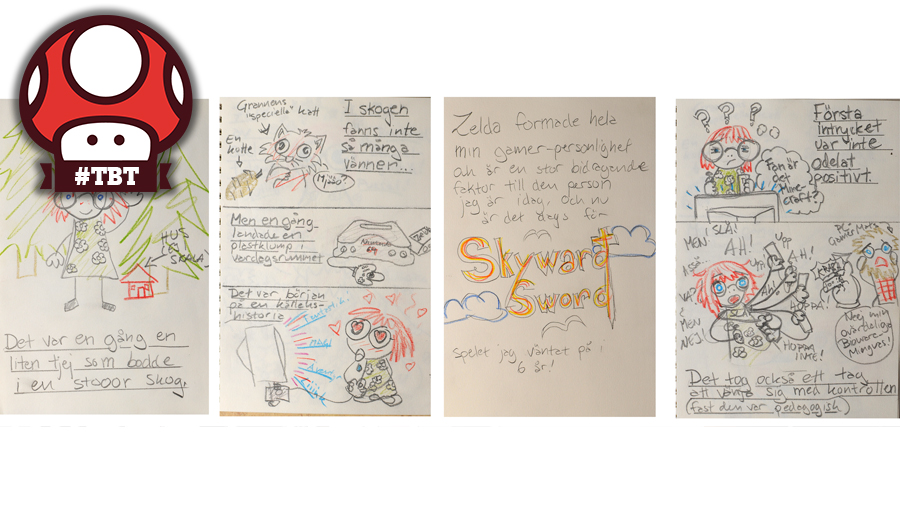 #TBT
HUS
EJ
SKALA!
Det var en gång en
liten tjej som bodde
i en stooor skog.
Grannens
"speciella" katt
En
kotte
Mjäo?
I skogen
fanns inte
så många
vänner...
Men en gång
landade en
plastklump i
vardagsrummet
Nintendo
64
Det var början
på en kärleks-
historia
Zelda formade hela
min gamer-personlighet
och är en stor bidragande
faktor till den person
jag är idag. Och nu
är det dags för
Skyward
Sword
Spelet jag väntat på i
6 år!
? ? ?
Första
intrycket
var inte
odelat
positivt.
Fan är
det
Mine-
craft?
MEN!
SLÅ!
AH!
Upp
AH!
Ah!
VA?
MEN
NEJ
SLÅ
Hoppa
INTE!
Nej min
ovärderliga
Bioware-
Mingvas!
Det tog också ett tag
att vänja sig med kontrollen
(fast den var pedagogisk)